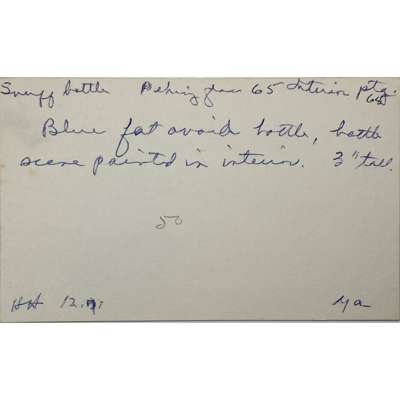 Snuff bottle Peking glass 65 Interior ptg.
Blue fat ovoid bottle, battle
scene painted in interior. 3" tall.
50
HH 12.
ya